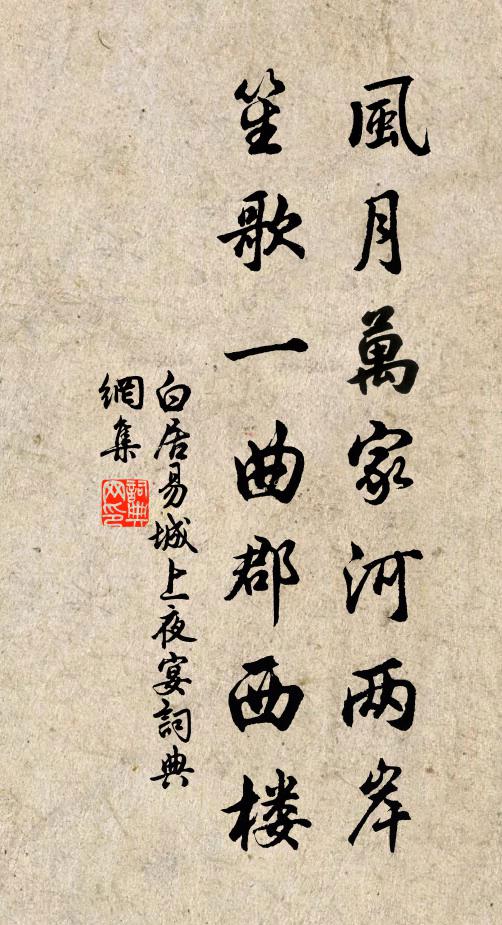 風月萬家河两岸
笙歌一曲郡西楼
白居易城上夜宴詞典
網集
詞典网印